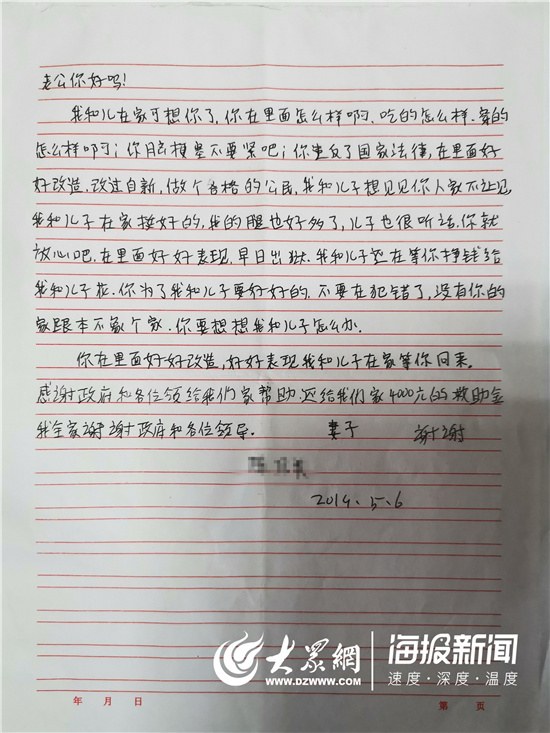 老公你好吗!
我和儿在家可想你了,你在里面怎么样啊.吃的怎么样.穿的
怎么样啊;你脑梗是不要紧吧;你违反了国家法律,在里面好
好改造.改过自新,做个合格的公民,我和儿子想见见你人家不让见
我和儿子在家挺好的,我的腿也好多了,儿子也很听话.你就
放心吧.在里面好好表现,早日出狱.我和儿子还在等你挣钱给
我和儿子花.你为了我和儿子要好好的.不要在犯错了,没有你的
家跟本不象个家.你要想想我和儿子怎么办.
你在里面好好改造,好好表现我和儿子在家等你回来。
感谢政府和各位领给我们家帮助.还给我们家4000元的救助金
我全家谢谢政府和各位领导. 妻子 谢谢
2019.5.6
大众網 海报新闻
WWW.DZWWW.COM 速度·深度·温度
年 月 日 第 页